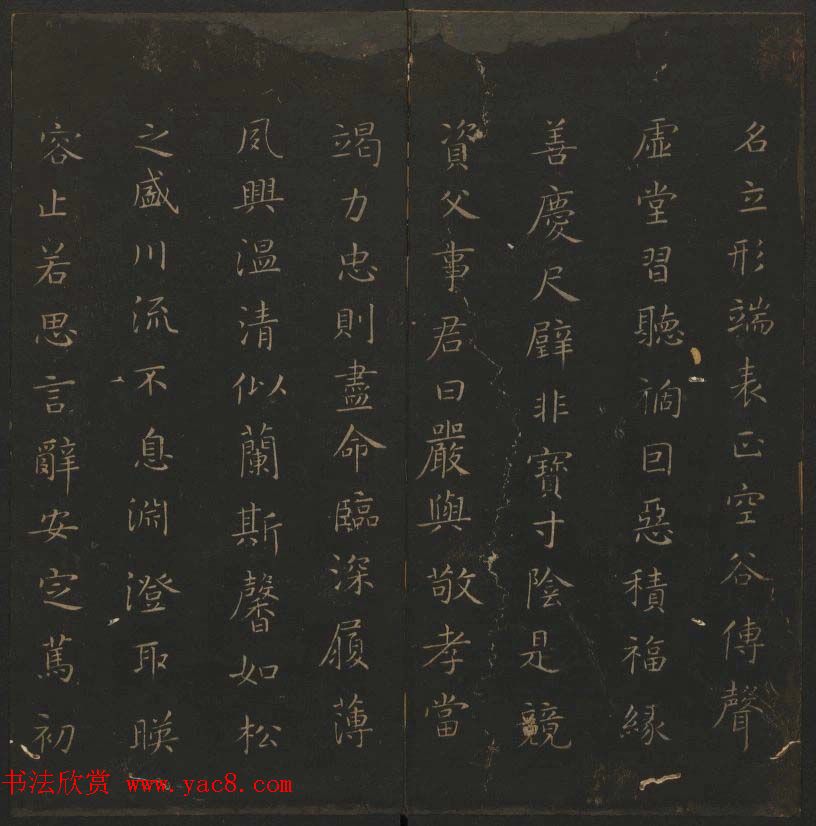 名立形端表正空谷傳聲
虛堂習聽禍因惡積福緣
善慶尺璧非寶寸陰是競
資父事君曰嚴與敬孝當
竭力忠則盡命臨深履薄
夙興溫清似蘭斯馨如松
之盛川流不息淵澄取暎
容止若思言辭安定篤初
书法欣赏 www.yac8.com